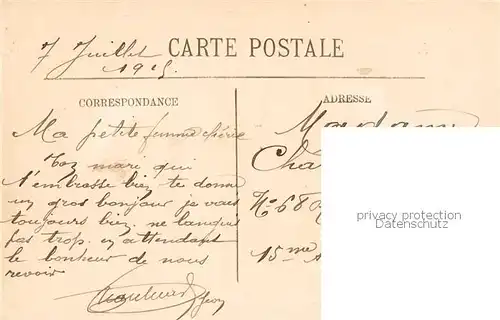 7 Juillet CARTE POSTALE
1915
CORRESPONDANCE
Ma petite femme chérie
Toz mari qui
t'embrasse biez te donne
uz gros bonjour je vais
toujours biez. ne languis
pas trop. ez attendant
le bonheur de nous
revoir
ADRESSE
Madam
Châ
N° 68
15me
privacy protection
Datenschutz